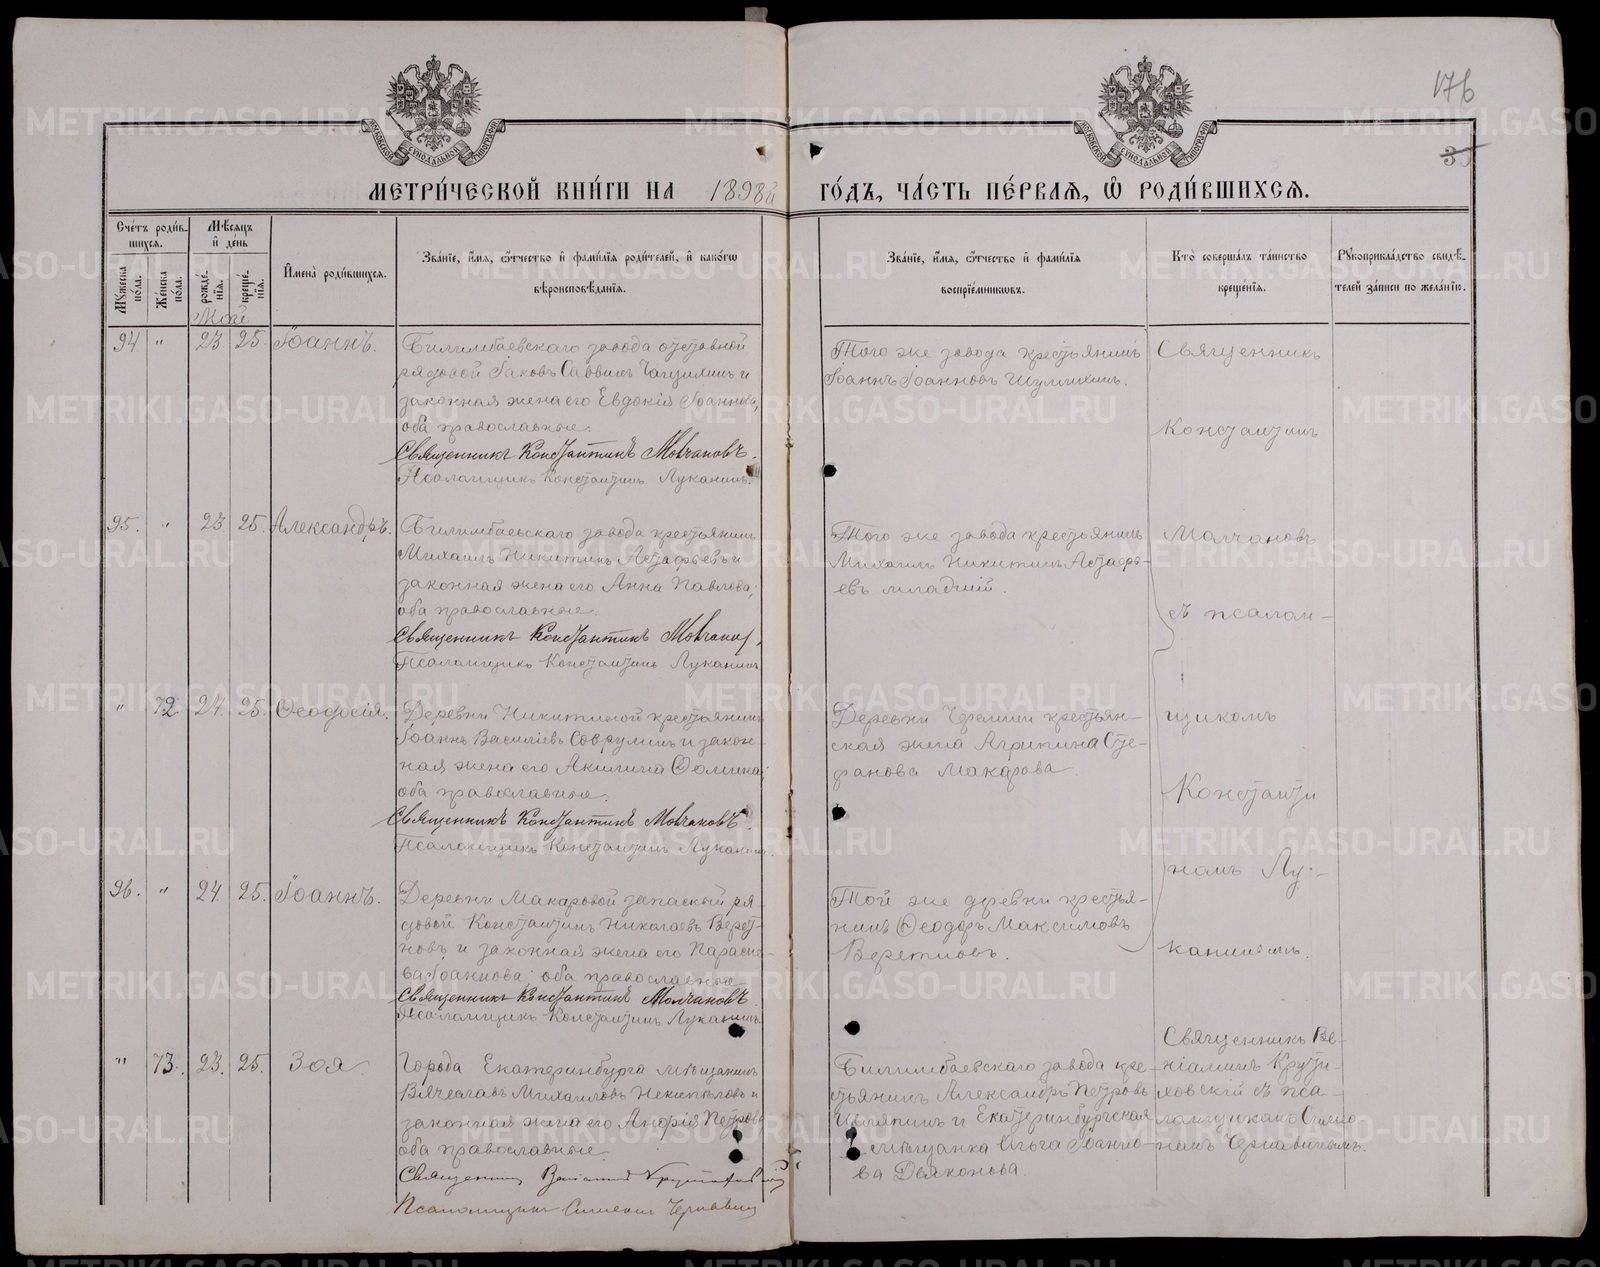 176
МЕТРИ́ЧЕСКОЙ КНИ́ГИ НА 1898й ГО́ДЪ, ЧА́СТЬ ПЕ́РВАЯ, Ѡ РОДИ́ВШИХСЯ.
Сче́тъ роди́в-
шихся.
Мꙋжеска по́ла.
Же́нска по́ла.
Мѣ́сяцъ и де́нь
рожде́-
нїя.
креще́-
нїя.
И҆мена̀ роди́вшихся.
Зва́нїе, и҆́мя, ѻ҆́тчество и҆ фами́лїя роди́телей, и҆ како́гѡ
вѣроисповѣ́данїя.
Зва́нїе, и҆́мя, ѻ҆́тчество и҆ фами́лїя
воспрїе́мниковъ.
Кто̀ соверша́лъ та́инство
креще́нїя.
Рꙋкоприкла́дство свидѣ́-
телей за́писи по жела́нїю.
Май
94 " 23 25. Іоаннъ.
Билимбаевскаго завода отставной
рядовой Іаковъ Саввинъ и
законная жена его Евдокія Іоаннова,
оба православные.
Священникъ Константинъ Молчановъ.
Псаломщикъ Константинъ Луканинъ.
Того же завода крестьянинъ
Іоаннъ Іоанновъ Шуллихинъ.
95. " 23 25. Александръ.
Билимбаевскаго завода крестьянинъ
Михаилъ Никитинъ Астафьевъ и
законная жена его Анна Павлова;
оба православные.
Священникъ Константинъ Молчановъ.
Псаломщикъ Константинъ Луканинъ
Того же завода крестьянинъ
Михаилъ Никитинъ Астафь-
евъ младшій.
" 72 24. 25. Ѳеодосія.
Деревни Никитиной крестьянинъ
Іоаннъ Василіевъ Соврулинъ и закон-
ная жена его Акилина Ѳомина;
оба православные.
Священникъ Константинъ Молчановъ.
Псаломщикъ Константинъ Луканинъ.
Деревни Черемши крестьян-
ская жена Агрипина Сте-
фанова Макарова.
96. " 24 25. Іоаннъ.
Деревни Макаровой запасный ря-
довой Константинъ Николаевъ Верет-
новъ и законная жена его Параске-
ва Іоаннова; оба православные
Священникъ Константинъ Молчановъ.
Псаломщикъ Константинъ Луканинъ.
Той же деревни крестья-
нинъ Ѳеодоръ Максимовъ
Веретновъ.
Священникъ
Константинъ
Молчановъ
съ псалом-
щикомъ
Константи
номъ Лу-
канинымъ.
" 73. 23. 25. Зоя.
Города Екатеринбурга мѣщанинъ
Вячеславъ Михаиловъ Некипѣловъ и
законная жена его Петрова
оба православные.
Священникъ Веніаминъ Крутиховскій
Псаломщикъ Симеонъ Чернавинъ
Билимбаевскаго завода кре-
стьянинъ Александръ Петровъ
Шляпинъ и Екатеринбургская
мѣщанка Ольга Іоанно-
ва Дьяконова.
Священникъ Ве-
ніаминъ Крути-
ховскій съ пса-
ломщикомъ Симео
номъ Чернавинымъ.
METRIKI.GASO-URAL.RU